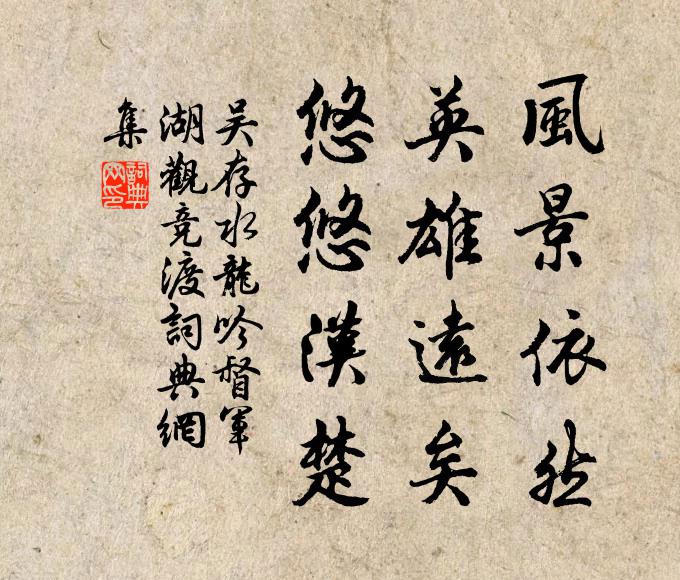 風景依然
英雄遠矣
悠悠漢楚
吴存水龍吟督軍
湖觀竞渡詞典網
集
詞典
网印